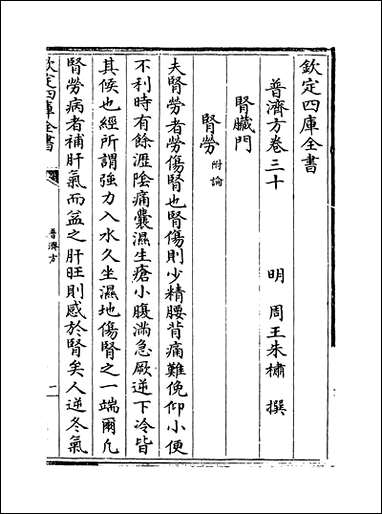 欽定四庫全書
普濟方卷三十
明 周王朱橚 撰
腎臟門
腎勞附論
夫腎勞者勞傷腎也腎傷則少精腰背痛難俛仰小便
不利時有餘瀝陰痛囊濕生瘡小腹滿急厥逆下冷皆
其候也經所謂強力入水久坐濕地傷腎之一端爾凡
腎勞病者補肝氣而益之肝旺則感於腎矣人逆冬氣
欽定四庫全書
普濟方
一